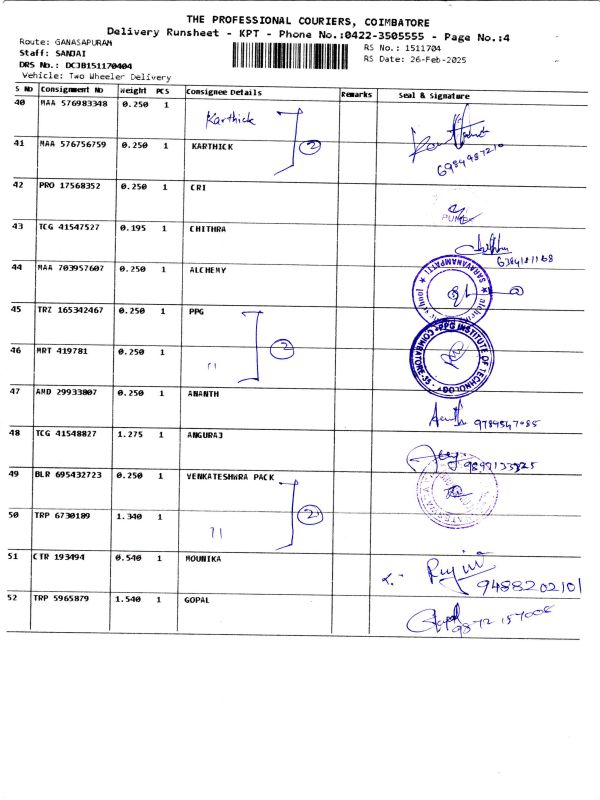 THE PROFESSIONAL COURIERS, COIMBATORE
Delivery Runsheet - KPT - Phone No.:0422-3505555 - Page No.:4
Route: GANASAPURAM
Staff: SANJAI
DRS No.: DCJB151170404
Vehicle: Two Wheeler Delivery
RS No.: 1511704
RS Date: 26-Feb-2025
S No Consignment No Weight PCS Consignee Details Remarks Seal & Signature
40 MAA 576983348 0.250 1 Karthick
2
41 MAA 576756759 0.250 1 KARTHICK
6984987210
42 PRO 17568352 0.250 1 CRI
43 TCG 41547527 0.195 1 CHITHRA
44 MAA 703957607 0.250 1 ALCHEMY
SARAVANAMPATTI
45 TRZ 165342467 0.250 1 PPG
2
PPG INSTITUTE OF TECHNOLOGY COIMBATORE-35
46 MRT 419781 0.250 1 "
47 AMD 29933807 0.250 1 ANANTH
Ananth 9789547085
48 TCG 41548827 1.275 1 ANGURAJ
49 BLR 695432723 0.250 1 VENKATESHWRA PACK
2
50 TRP 6730189 1.340 1 "
51 CTR 193494 0.540 1 MOUNIKA
9488202101
52 TRP 5965879 1.540 1 GOPAL
9872157008